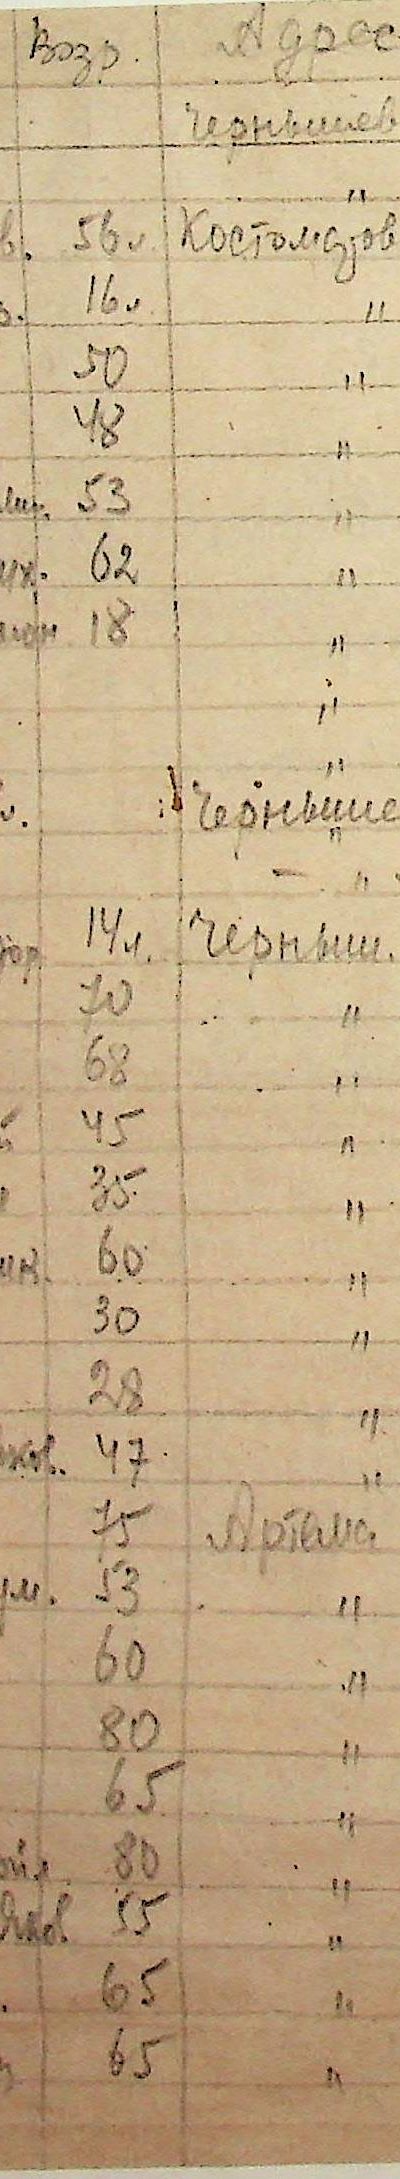 Возр. Адрес
Чернышев
"
в. 56 л. Костомаров
16 л. "
50 "
48 "
53 "
62 "
18 "
"
"
л. Черныше
"
"
14 л. Черныш.
70 "
68 "
45 "
35 "
60 "
30 "
28 "
ков. 47 "
75 Артема
ум. 53 "
60 "
80 "
65 "
80 "
55 "
65 "
65 "